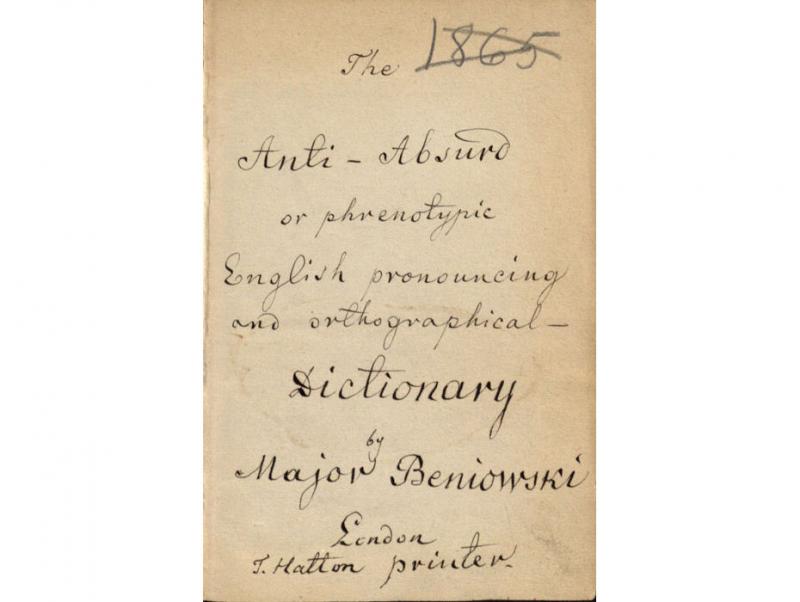 The 1865
Anti - Absurd
or phrenotypic
English pronouncing
and orthographical -
Dictionary
by
Major Beniowski
London
T. Hatton printer.